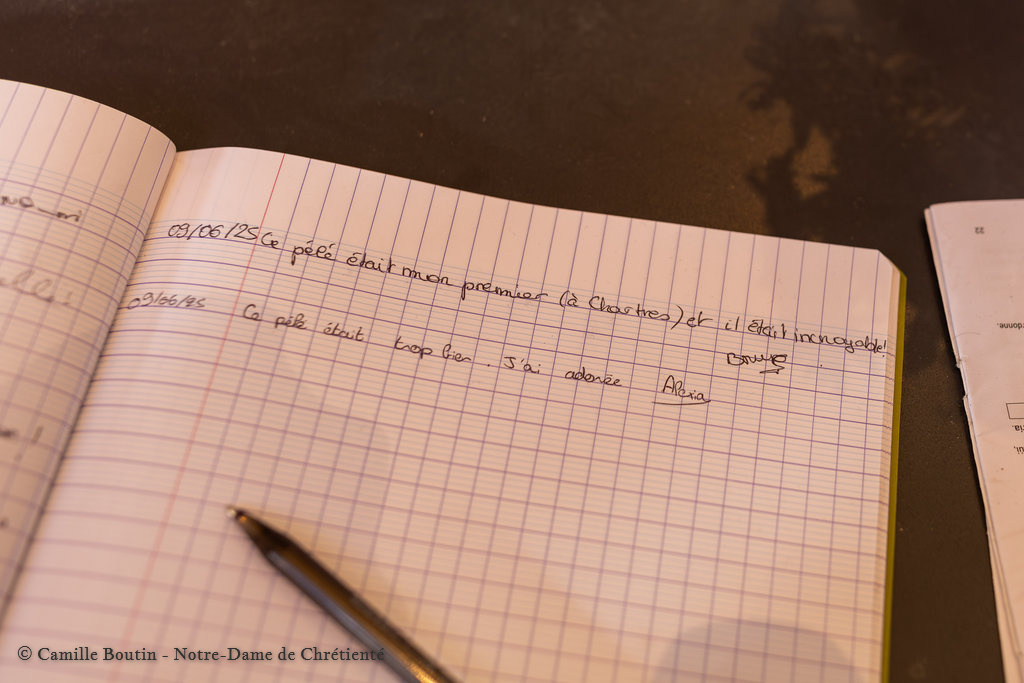 09/06/25 Ce pélé était mon premier (à Chartres) et il était incroyable!
09/06/25 Ce pélé était trop bien. J'ai adorée Alexia
22
© Camille Boutin - Notre-Dame de Chrétienté